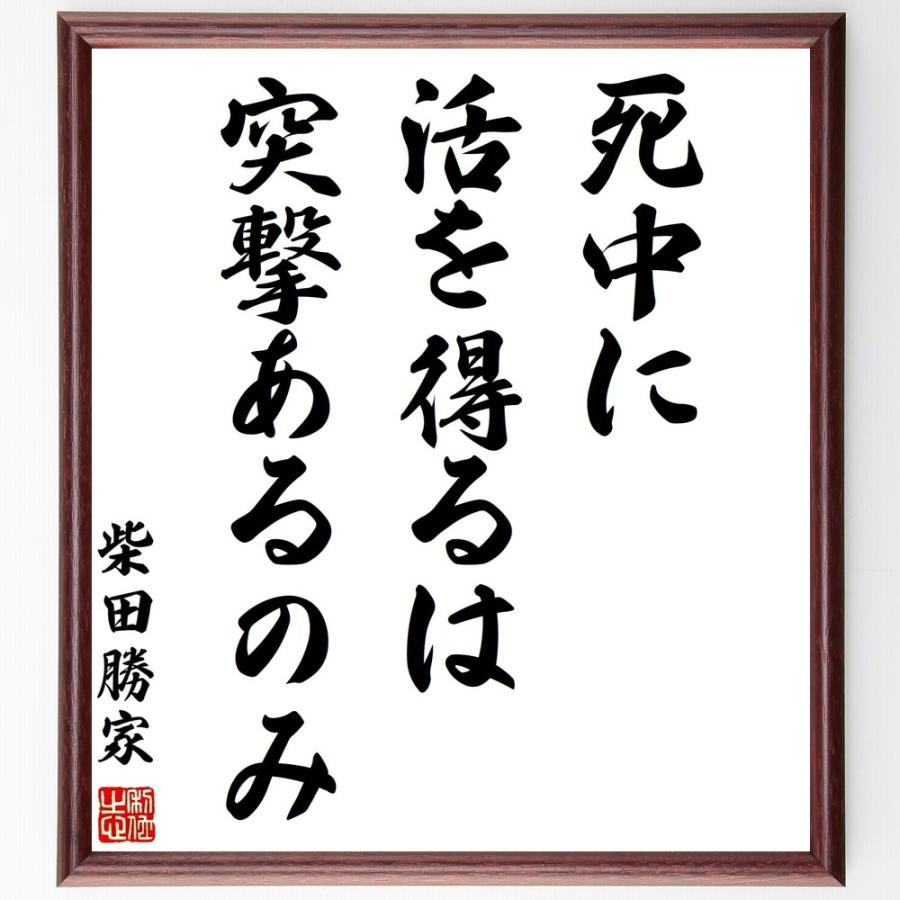 死中に
活を得るは
突撃あるのみ
柴田勝家